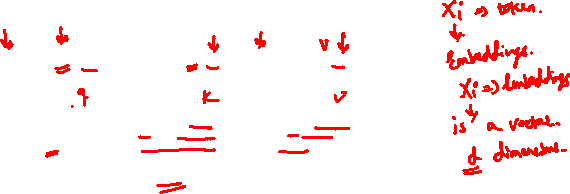 Xi => token.
Embeddings.
Xi => Embeddings
is a vector.
d dimension.
q K V